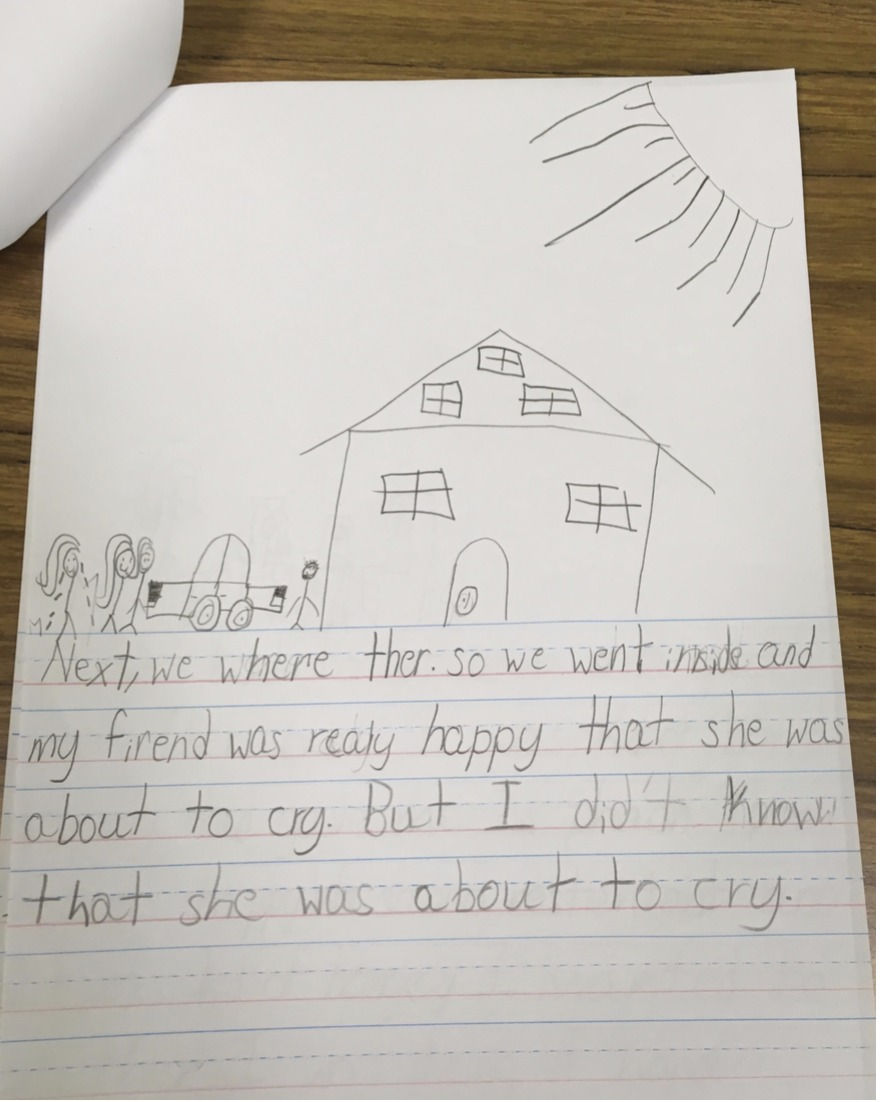 Next, we where ther. so we went inside and
my firend was realy happy that she was
about to cry. But I did't know
that she was about to cry.